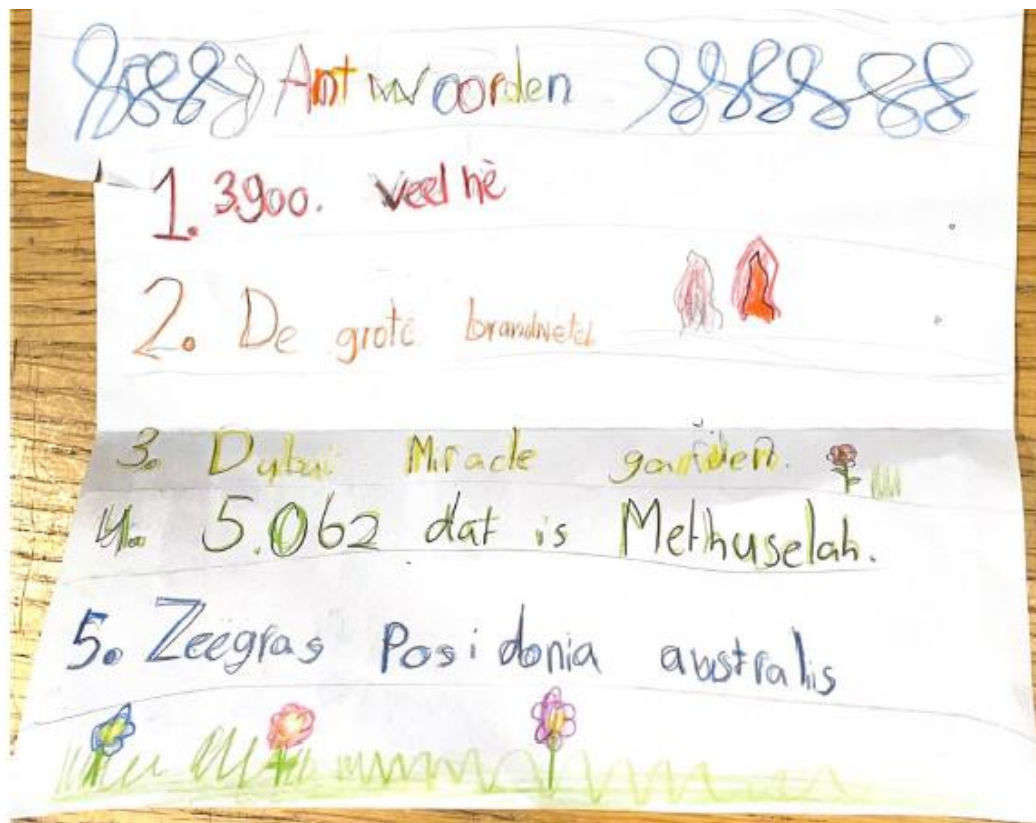 Antwoorden
1. 3.900. Veel hè
2. De grote brandnetel
3. Dubai Miracle garden.
4. 5.062 dat is Methuselah.
5. Zeegras Posidonia australis